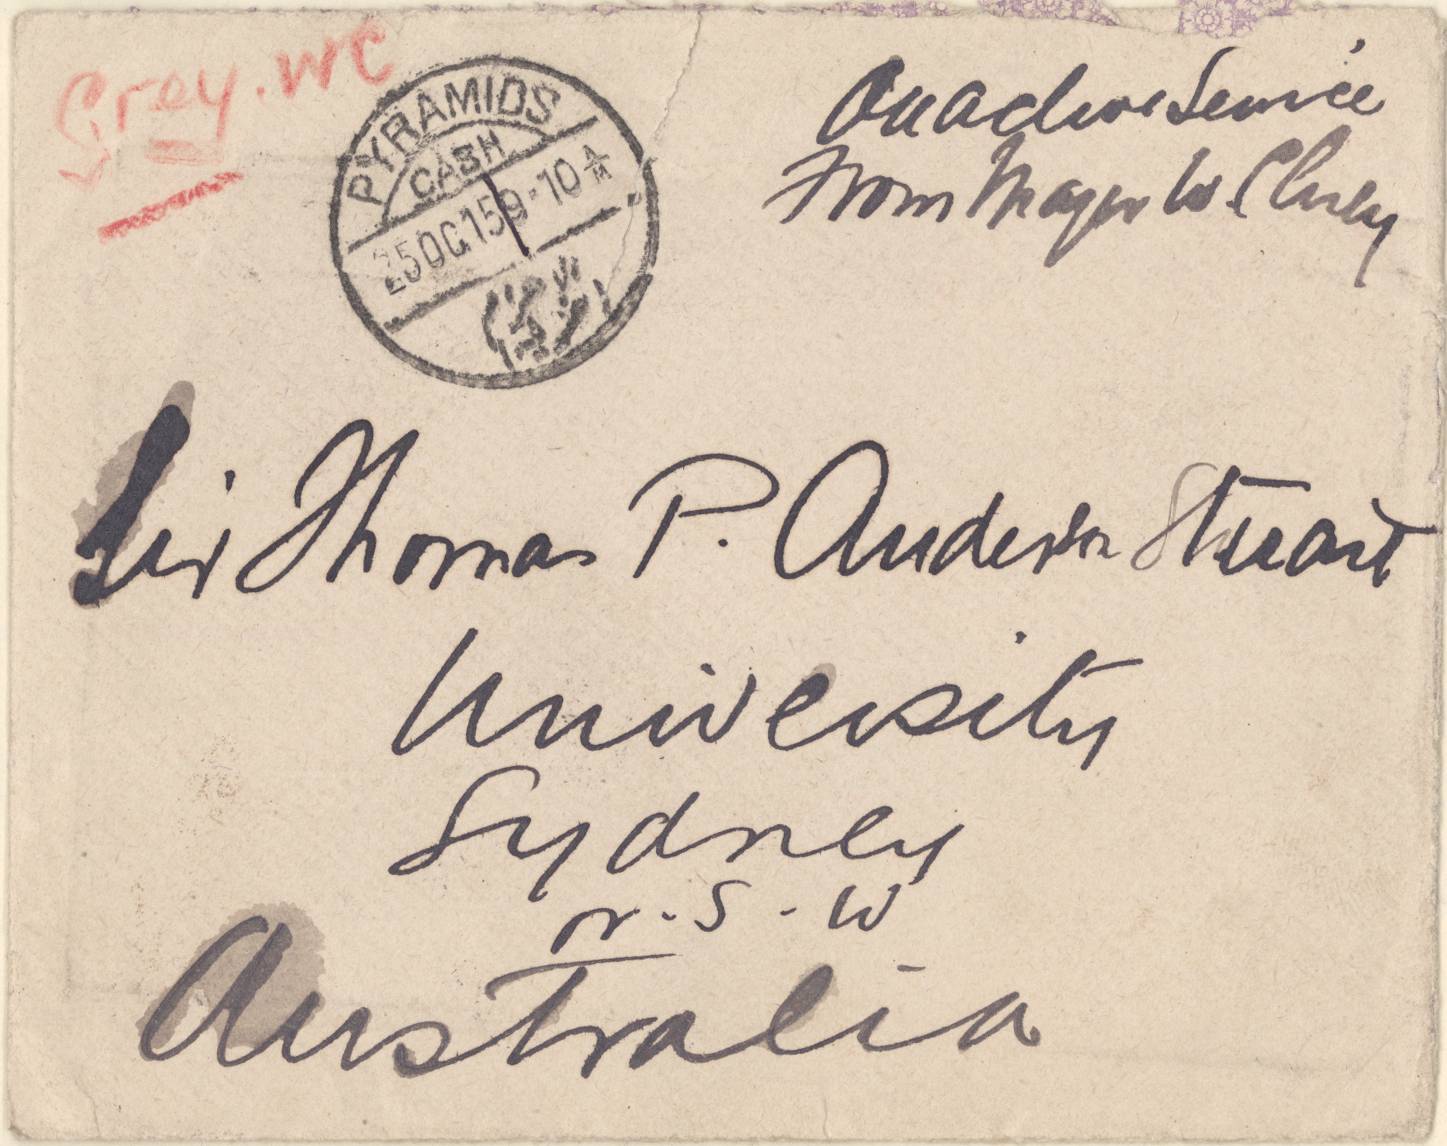 Grey. WC
PYRAMIDS
CASH
25 OC 15 9-10 A
On Active Service
From Major W. C. Grey
Sir Thomas P. Anderson Stuart
University
Sydney
N. S. W
Australia